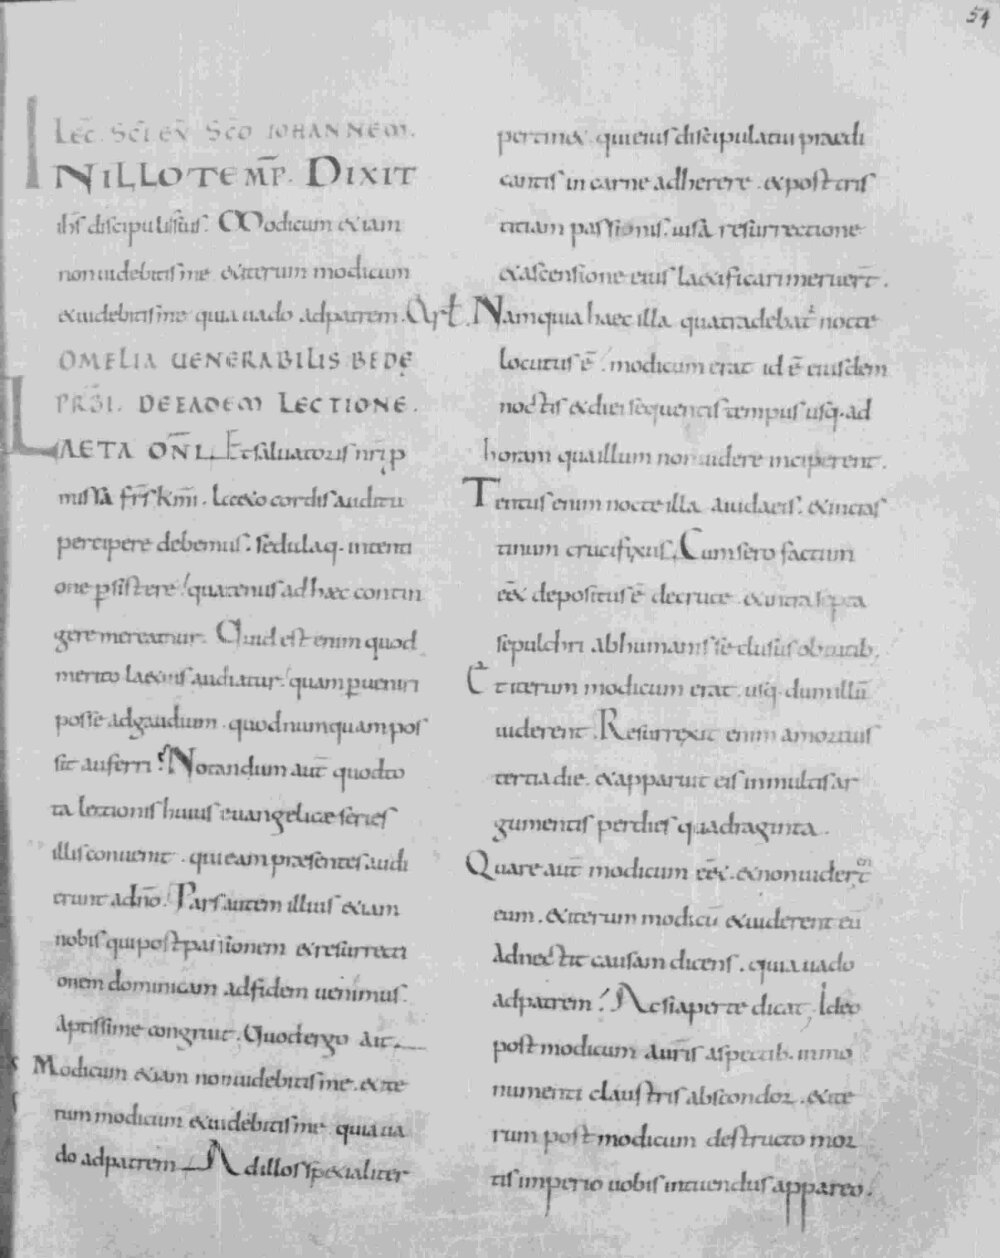 54
LEC̄. SC̄I EV̄. SC̄D IOHANNEM.
IN ILLO TEMP̄. DIXIT
ih̄s discipulis suis. Modicum & iam
non uidebitis me. & iterum modicum
& uidebitis me quia uado ad patrem.
OMELIA UENERABILIS BEDĘ
PR̄BI. DE EADEM LECTIONE.
LAETA OM̄I. Et saluatoris nr̄i p
missa fr̄s km̄i. laeto cordis auditu
percipere debemus. sedulaq. intenti
one psistere. quatenus ad haec contin
gere mereamur. Quid est enim quod
merito laetius audiatur. quam pueniri
posse ad gaudium. quod numquam pos
sit auferri? Notandum aut̄ quod to
ta lectionis huius euangelicae series
illis conuenit. qui eam praesentes audi
erunt a dn̄o. Pars autem illius & iam
nobis qui post passionem & resurrecti
onem dominicam ad fidem uenimus.
Aptissime congruit. Quod ergo ait
Modicum & iam non uidebitis me. & ite
rum modicum & uidebitis me quia ua
do ad patrem Ad illos specialiter
pertin&. qui eius discipulatui praedi
cantis in carne adherere. & post tris
titiam passionis. uisa resurrectione
& ascensione eius laetificari meruer̄t.
Nam quia haec illa qua tradebat nocte
locutus ē. modicum erat id ē eiusdem
noctis & diei sequentis tempus usq. ad
horam qua illum non uidere inciperent.
Tentus enim nocte illa a iudaeis. & incras
tinum crucifixus. Cum sero factum
eēt depositus ē de cruce. & intra septa
sepulchri ab humanis se clusus obtutib.
Et iterum modicum erat. usq. dum illū
uiderent. Resurrexit enim a mortuis
tertia die. & apparuit eis in multis ar
gumentis per dies quadraginta.
Quare aut̄ modicum eēt. & non uider̄t
eum. & iterum modicū & uiderent eū
Adnectit causam dicens. quia uado
ad patrem. Ac si aperte dicat, Ideo
post modicum aur̄is aspectib. inmo
numenti claustris abscondor. & ite
rum post modicum destructo mor
tis imperio uobis intuendus appareo.